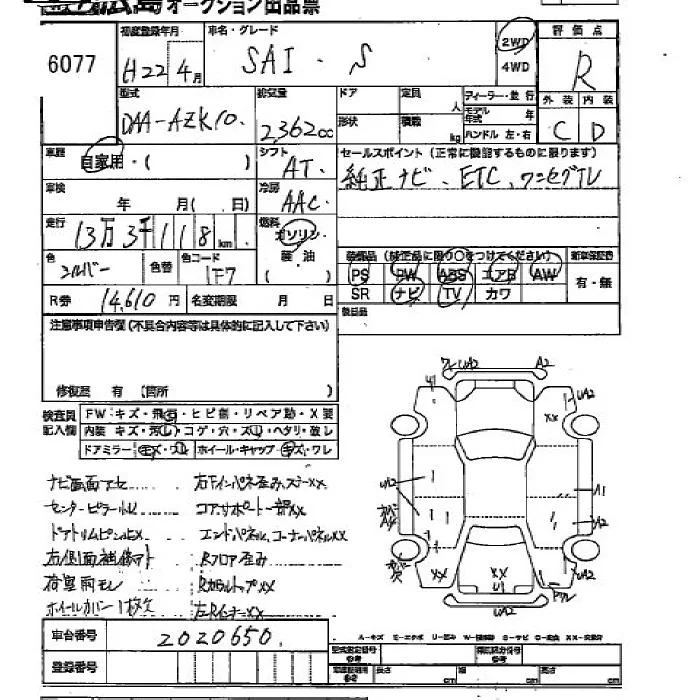 広島オークション出品票
6077
初度登録年月
H22 4月
車名・グレード
SAI・S
2WD
4WD
評価点
R
外装 内装
C D
型式
DAA-AZK10
排気量
2,362cc
ドア
定員
人
形状
積載
kg
ディーラー・並行
モデル年式
年
ハンドル 左・右
車歴
自家用・( )
シフト
AT
セールスポイント (正常に機能するものに限ります)
純正ナビ、ETC、ワンセグTV
車検
年 月( 日)
冷房
AAC
走行
13万3千118km
燃料
ガソリン
軽油
( )
色
シルバー
色替
色コード
1F7
装備品 (純正品に限り○をつけてください)
新車保証書
PS PW ABS エアB AW
有・無
SR ナビ TV カワ
R券
14,610円
名変期限
月 日
後日品
注意事項申告欄(不具合内容等は具体的に記入して下さい)
修復歴 有 (箇所 )
検査員記入欄
FW:キズ・飛石・ヒビ割・リペア跡・X要
内装 キズ・汚レ・コゲ・穴・スレ・ヘタリ・破レ
ドアミラー:キズ・ワレ
ホイール・キャップ:キズ・ワレ
ナビ画面アセ
右Fインパネ歪み、ステーXX
センターピラー
コアサポート一部XX
エンドパネル、コーナーパネルXX
右側面補修アト
Rフロア歪み
荷室雨モレ
ホイールカバー1枚欠
左Rイナー XX
UA2
A2
U1
XX
UA2
UA2
A1
A2
XX
XX
U1
UA2
UA2
車台番号
2020650
登録番号
A-キズ
型式指定番号
参考
類別区分番号
参考
自動車管理
参考
長さ
cm
幅
cm
高さ
cm